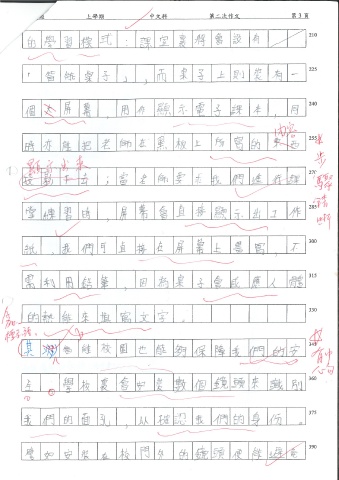 上學期 中文科 第二次作文 第3頁
的學習模式：課室裏將會設有 210
「智能桌子」，而桌子上則安有一 225
個大屏幕，用作顯示電子課本，同 240
時亦能把老師在黑板上所寫的 內容 255
顯示出來
當老師要求我們進行課 270
堂練習時，屏幕會直接顯示出工作 285
紙，我們可直接在屏幕上書寫，不 300
需利用鉛筆，因為桌子會感應人體 315
的熱能來填寫文字。 330
其次 智能校園也能夠保障我們的安 345
全。學校裏會安裝數個鏡頭來識別 360
我們的面孔，以確認我們的身份。 375
譬如安裝在校門外的鏡頭便能 390